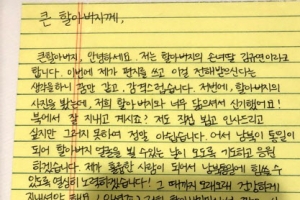 큰 할아버지께,
큰할아버지, 안녕하세요. 저는 할아버지의 손녀딸 김규연이라고
합니다. 이번에 제가 편지를 쓰고 이걸 전해받으신다는
생각을하니 꿈만 같고, 감격스럽습니다. 저번에, 할아버지의
사진을 봤는데, 저희 할아버지와 너무 닮으셔서 신기했어요!
북에서 잘 지내고 계시죠? 저도 직접 보고 인사드리고
싶지만 그러지 못하여 정말 아쉽습니다. 어서 남북이 통일이
되어 할아버지 얼굴을 뵐 수있는 날이 오도록 기도하고 응원
하겠습니다. 제가 훌륭한 사람이 되어서 남북통일에 힘쓸 수
있도록 열심히 노력하겠습니다! 그 때까지 오래오래 건강하게